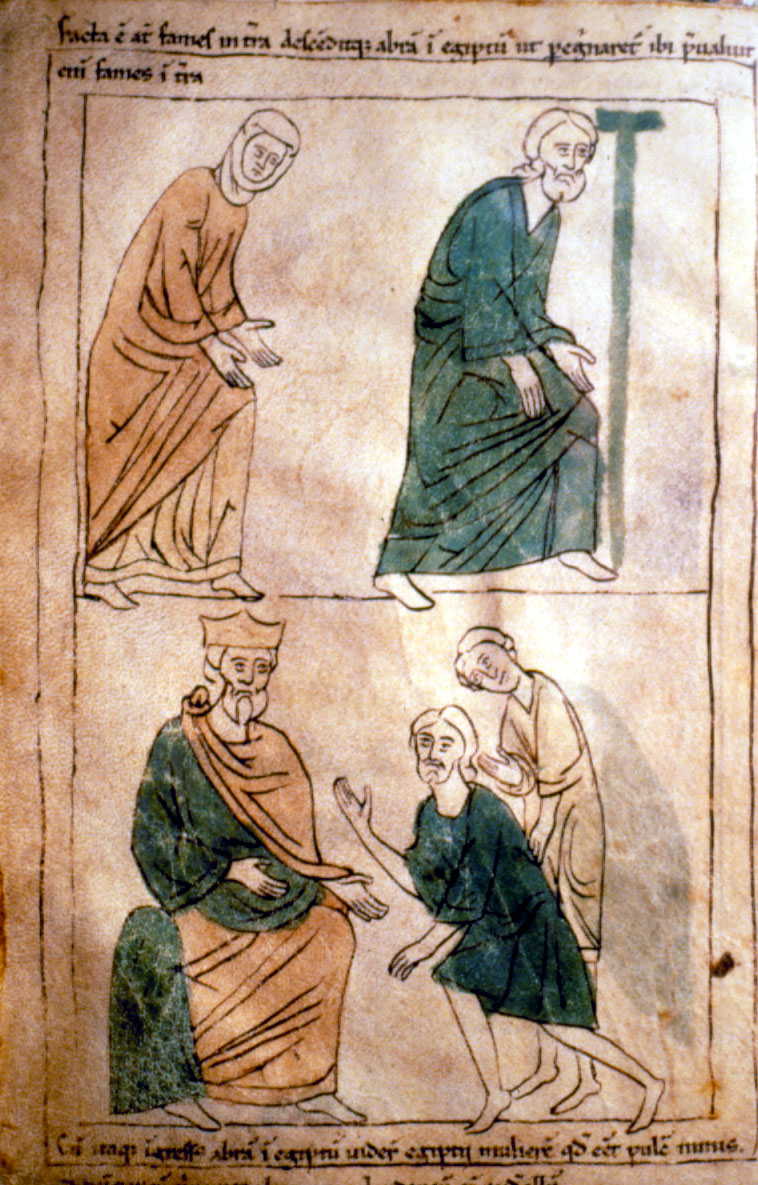 facta ē aūt fames in tr̄a descēditq; abrā ī egiptū ut peg̃naret̃ ibi p̃ualuit
eni fames ī tr̄a
Cū itaq; īgressꝰ abrā ī egiptū uider̄ egiptii mulierē qd̄ eēt pulc̄ nimis.